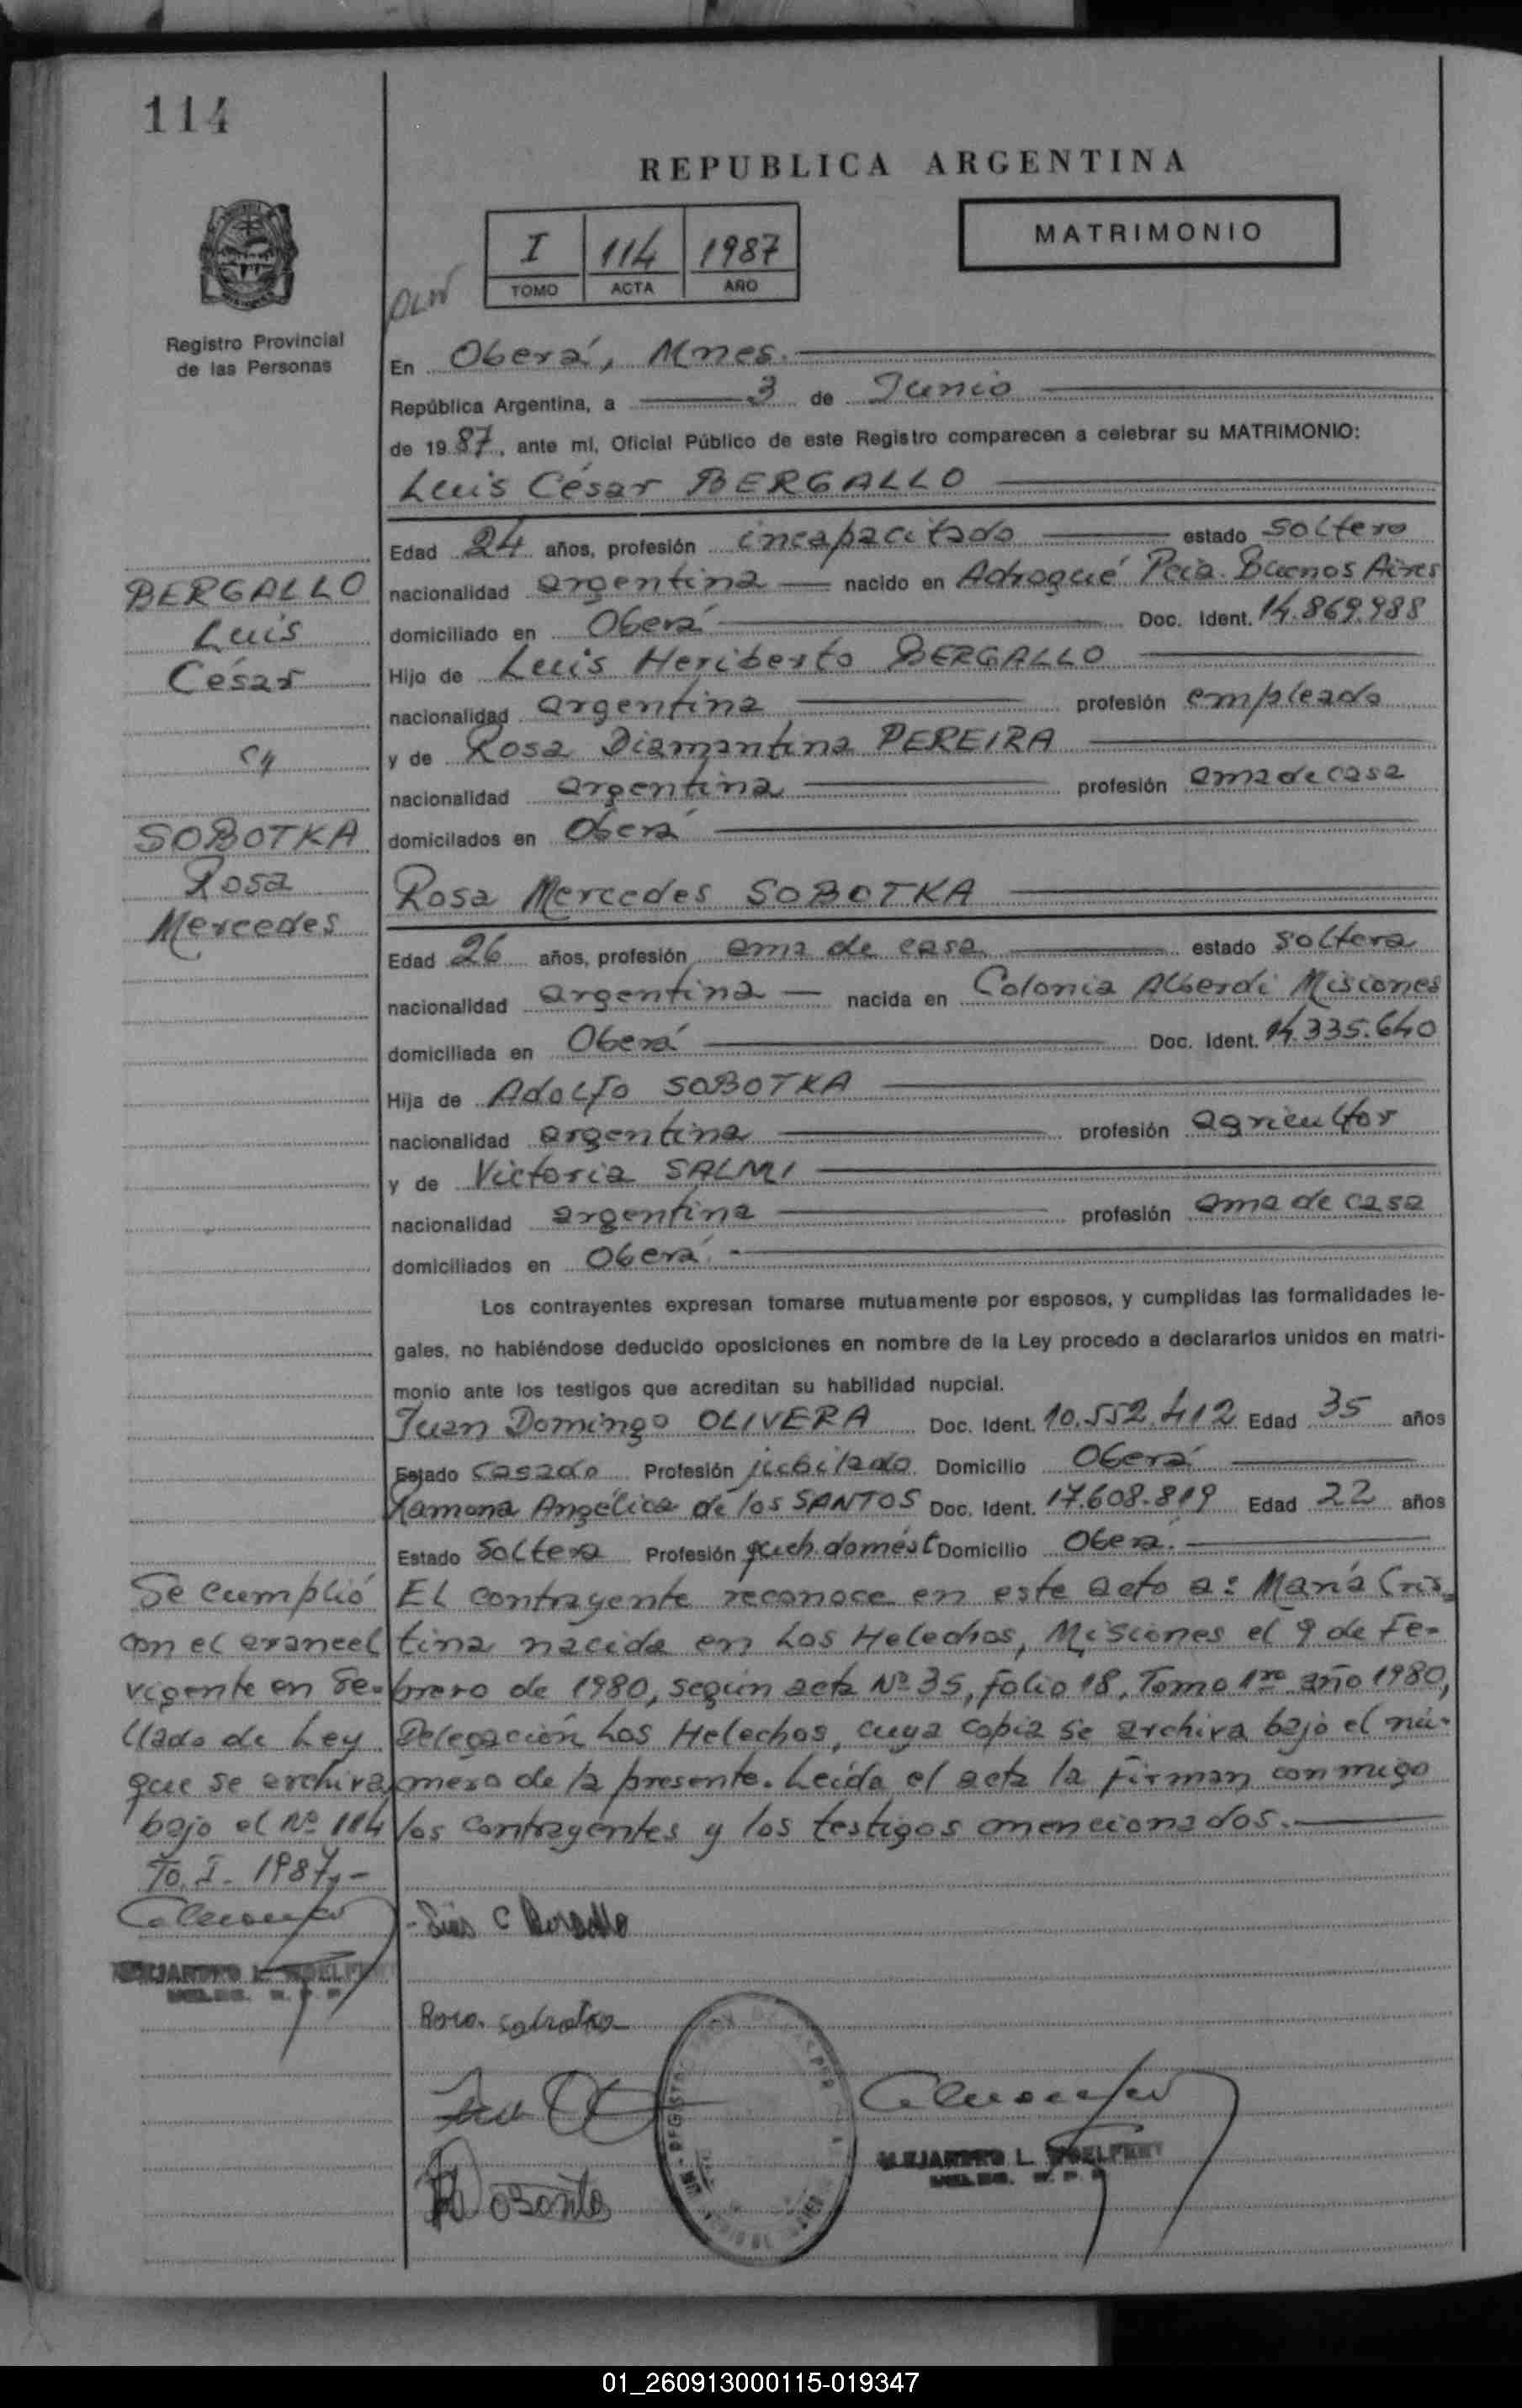 114
REPUBLICA ARGENTINA
MATRIMONIO
I 114 1987
TOMO ACTA AÑO
Registro Provincial
de las Personas
En Oberá, Mnes.
República Argentina, a 3 de Junio
de 1987, ante mí, Oficial Público de este Registro comparecen a celebrar su MATRIMONIO:
Luis César BERGALLO
Edad 24 años, profesión incapacitado estado soltero
BERGALLO
nacionalidad argentina nacido en Adrogué Pcia. Buenos Aires
Luis
domiciliado en Oberá Doc. Ident. 14.869.988
César
Hijo de Luis Heriberto BERGALLO
nacionalidad argentina profesión empleado
y de Rosa Diamantina PEREIRA
nacionalidad argentina profesión ama de casa
SOBOTKA
domicilados en Oberá
Rosa
Rosa Mercedes SOBOTKA
Mercedes
Edad 26 años, profesión ama de casa. estado soltera
nacionalidad argentina nacida en Colonia Alberdi Misiones
domiciliada en Oberá Doc. Ident. 14.335.640
Hija de Adolfo SOBOTKA
nacionalidad argentina profesión agricultor
y de Victoria SALMI
nacionalidad argentina profesión ama de casa
domiciliados en Oberá.
Los contrayentes expresan tomarse mutuamente por esposos, y cumplidas las formalidades le-
gales, no habiéndose deducido oposiciones en nombre de la Ley procedo a declararlos unidos en matri-
monio ante los testigos que acreditan su habilidad nupcial.
Juan Domingo OLIVERA Doc. Ident. 10.552.412 Edad 35 años
Estado casado Profesión jubilado Domicilio Oberá
Ramona Angélica de los SANTOS Doc. Ident. 17.608.819 Edad 22 años
Estado soltera Profesión queh. domést Domicilio Oberá.
El contrayente reconoce en este acto a: María Cris-
tina nacida en Los Helechos, Misiones el 9 de Fe-
brero de 1980, según acta Nº 35, folio 18, Tomo 1ro año 1980,
Delegación Los Helechos, cuya copia se archiva bajo el nú-
mero de la presente. Leída el acta la firman conmigo
los contrayentes y los testigos mencionados.
Se cumplió
con el arancel
vigente en Se-
llado de Ley
que se archiva
bajo el Nº 114
To. I- 1987.-
Luis C Bergallo
ALEJANDRO L. WOELFERT
Rosa Sobotka
ALEJANDRO L. WOELFERT
01_260913000115-019347